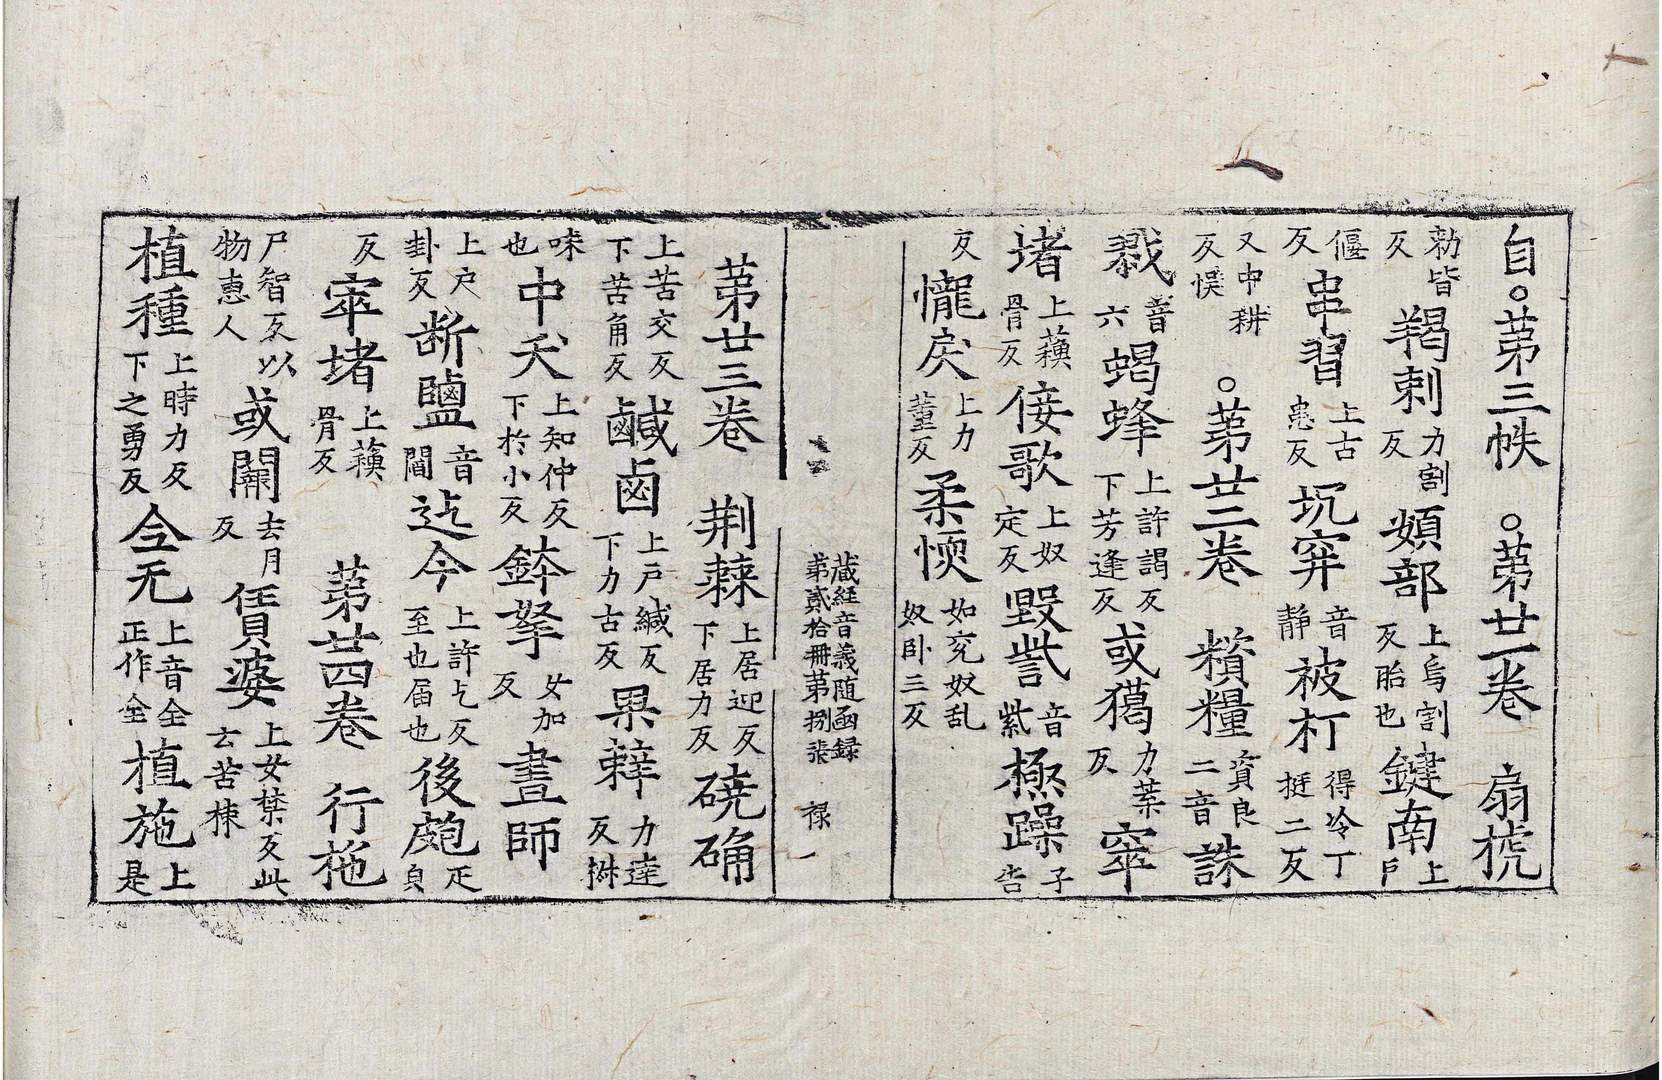 自。第三帙　。第廿一卷　扇搋
勑皆反羯剌力割反頞部上烏割反胎也鍵南上户
偃反串習上古患反坑穽音静被朾得冷丁挺二反
又中耕反悮。第廿二卷　糧資良二音誅
戮音六蝎蜂上許謁反下芳逢反或獦力葉反窣
堵上蘓骨反侫歌上奴定反毀訾音紫極躁子告
反㦕戾上力董反柔愞如兖奴乱奴卧三反
藏經音義随函録
第貳拾冊第捌張　禄一
第廿三卷　荆棘上居迎反下居力反硗确
上苦交反下苦角反鹹鹵上户緘反下力古反果辢力達反
味也中夭上知仲反下於小反鉢拏女加反晝師
上户卦反断鹽音閻迄今上許乞反至也届也後皰疋皃
反窣堵上蘓骨反　第廿四卷　行拖
尸智反以物惠人或闕去月反賃婆上女禁反此云苦楝
植種上時力反下之勇反仝无上音全正作全植施上是